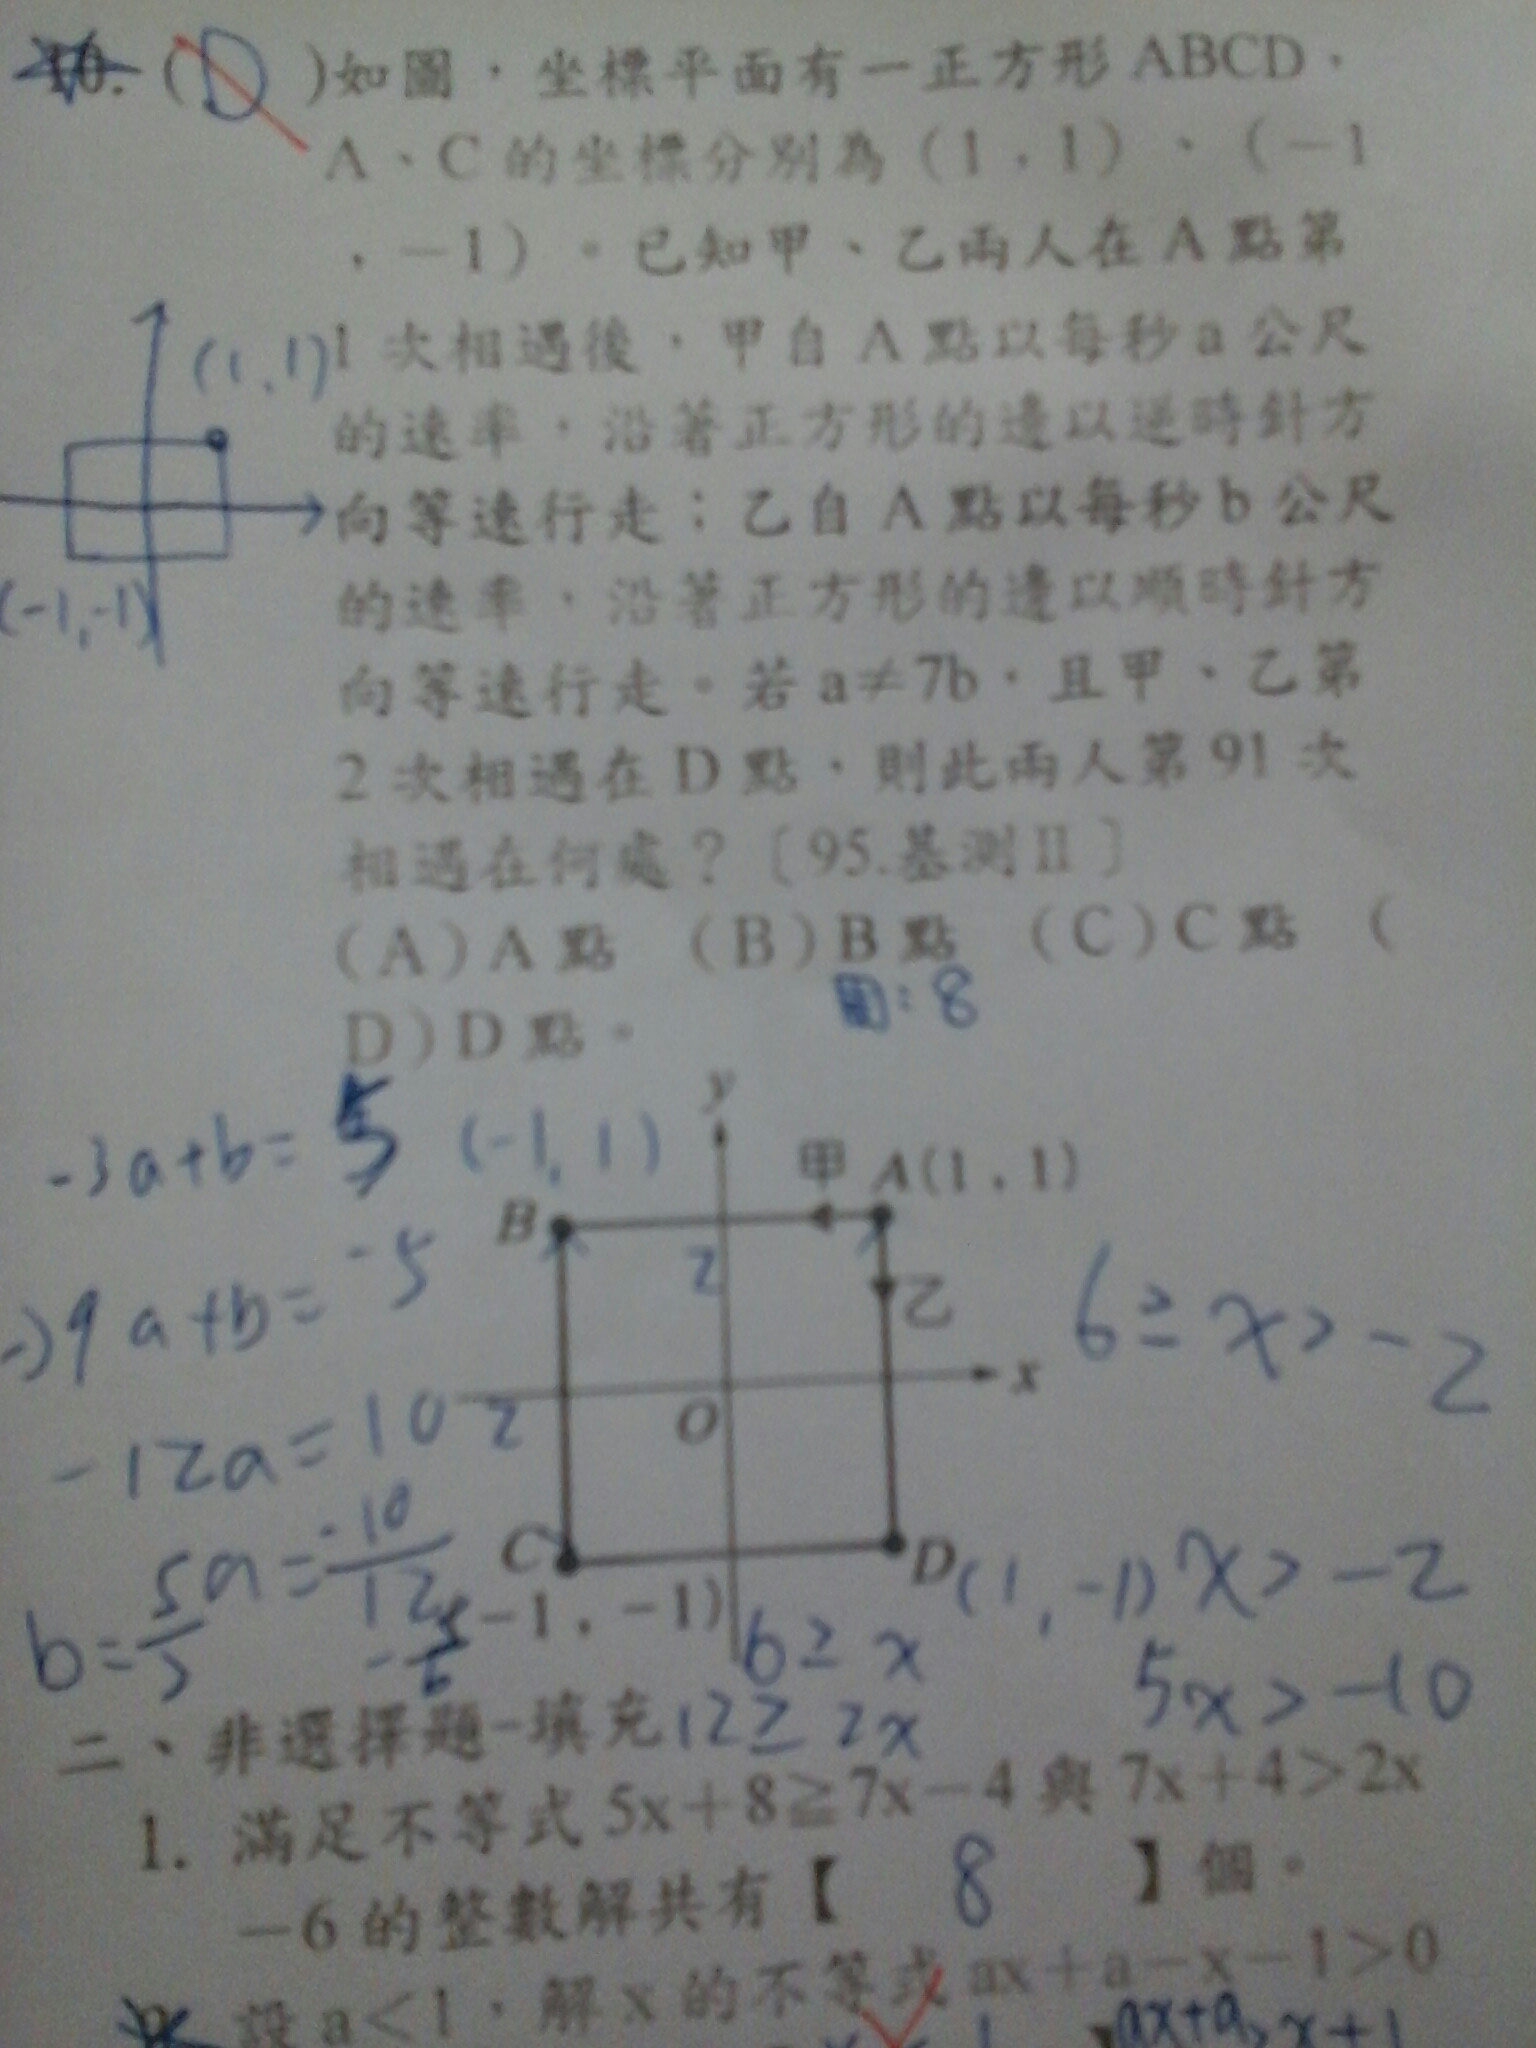 10. ( D )如圖，坐標平面有一正方形 ABCD，
A、C 的坐標分別為（1，1）、（－1
，－1）。已知甲、乙兩人在 A 點第
(1,1)
1 次相遇後，甲自 A 點以每秒 a 公尺
的速率，沿著正方形的邊以逆時針方
向等速行走；乙自 A 點以每秒 b 公尺
(-1,-1)
的速率，沿著正方形的邊以順時針方
向等速行走。若 a≠7b，且甲、乙第
2 次相遇在 D 點，則此兩人第 91 次
相遇在何處？〔95.基測Ⅱ〕
(A) A 點 (B) B 點 (C) C 點 (
D) D 點。
: 8
y
-3a+b= 5
(-1,1)
甲 A(1，1)
B
2
乙
-5
9a+b=
6≥x>-2
x
O
-12a=10
2
5a=-10/12
C
D
(1,-1)
x>-2
b=5/
-5/6
-1，-1)
6≥x
5x>-10
二、非選擇題-填充
12≥2x
1. 滿足不等式 5x＋8≧7x－4 與 7x＋4＞2x
－6 的整數解共有【 8 】個。
設 a＜1，解 x 的不等式 ax＋a－x－1＞0
ax+a>x+1